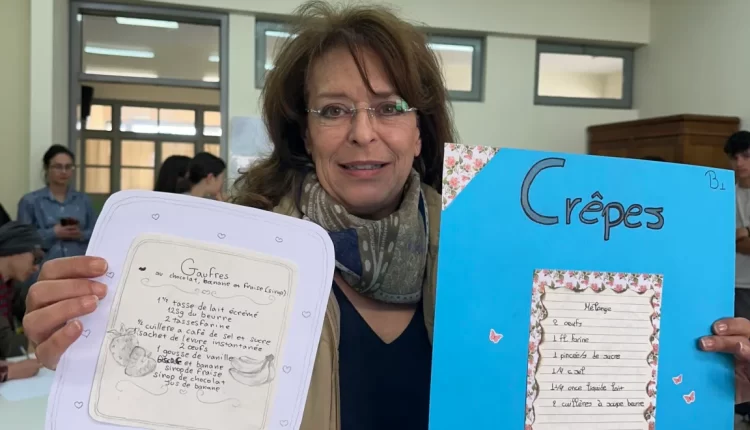 Gaufres
au chocolat, banane et fraise (sirop)
1 tasse de lait écrémé
125g du beurre
2 tasses farine
cuillere a café de sel et sucre
1 sachet de levure instantanée
2 œufs
1 gousse de vanille
et banane
sirop de fraise
sirop de chocolat
Jus de banane
Crêpes
B1
Mélange
2 œufs
1 farine
1 pincée/s de sucre
1/4 sel
once liquide lait
2 cuillères à soupe beurre